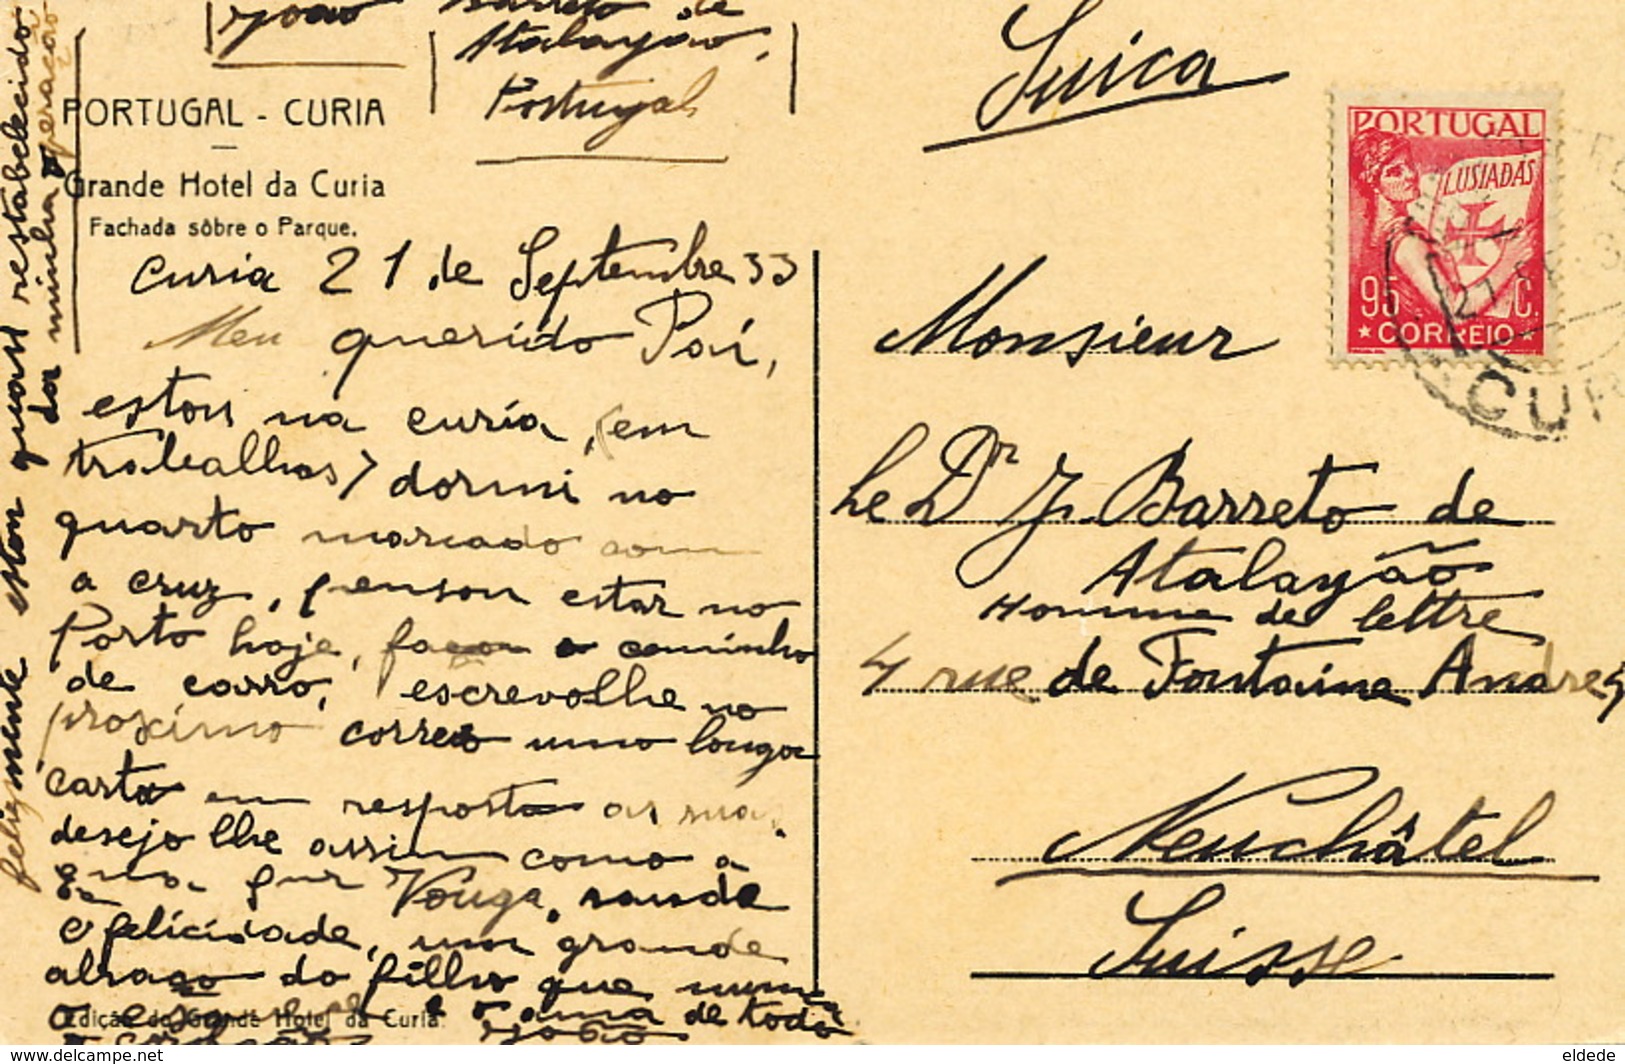 João
Barreto de
Atalayão,
Portugal
Suiça
PORTUGAL - CURIA
Grande Hotel da Curia
Fachada sôbre o Parque.
PORTUGAL
LUSIADAS
95 C.
* CORREIO *
CUR
Curia 21 de Septembre 33
Meu querido Pai,
estou na curia, (em
trabealhos) dormi no
quarto marcado com
a cruz, penson estar no
Porto hoje, faço o caminho
de carro, escrevolhe no
proximo correo uma longa
carta em resposta as suas.
desejo lhe assim como a
Vouga, saude
e felicidade, um grande
abraço do filho que nunca
o e o ama de todo
João
Edição do Grande Hotel da Curia.
felizmente estou quasi restabelecido
da minha operação
Monsieur
Le Dr J. Barreto de
Atalayão
Homme de lettre
4 rue de Fontaine Andres
Neuchâtel
Suisse
delcampe.net
eldede